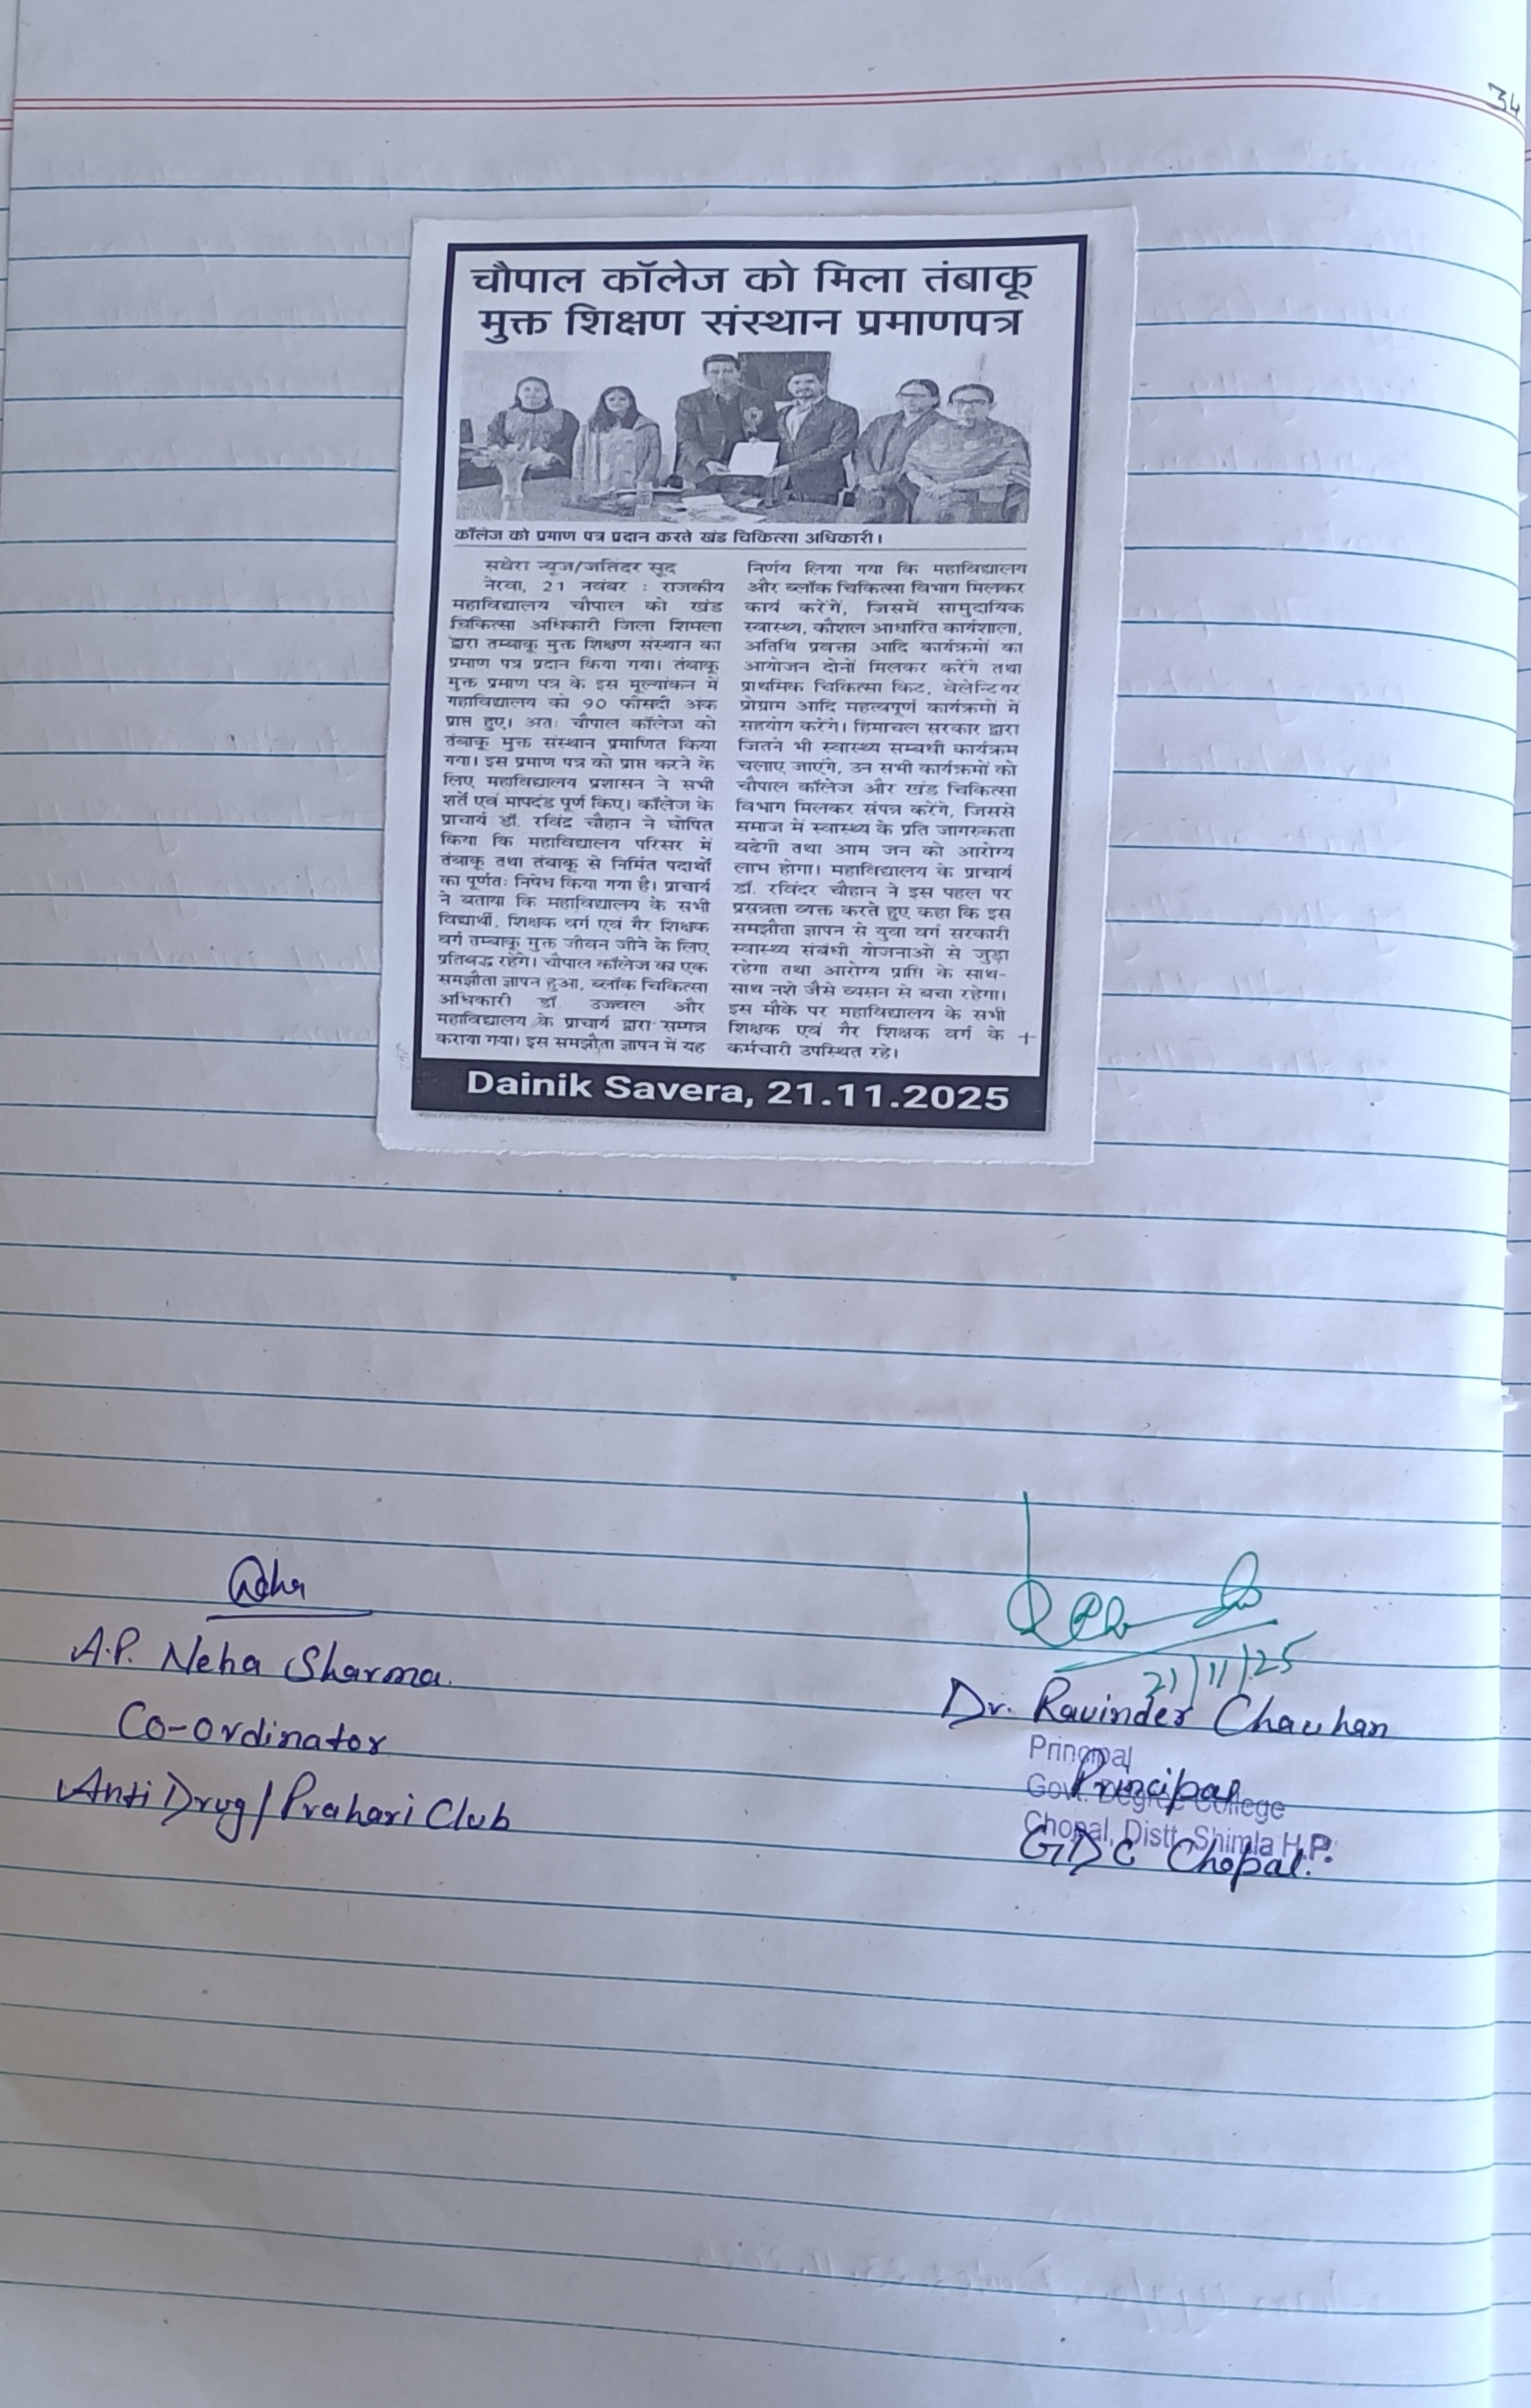 34
चौपाल कॉलेज को मिला तंबाकू
मुक्त शिक्षण संस्थान प्रमाणपत्र
कॉलेज को प्रमाण पत्र प्रदान करते खंड चिकित्सा अधिकारी।
सवेरा न्यूज/जतिंदर सूद
नेरवा, 21 नवंबर : राजकीय
महाविद्यालय चौपाल को खंड
चिकित्सा अधिकारी जिला शिमला
द्वारा तम्बाकू मुक्त शिक्षण संस्थान का
प्रमाण पत्र प्रदान किया गया। तंबाकू
मुक्त प्रमाण पत्र के इस मूल्यांकन में
महाविद्यालय को 90 फीसदी अंक
प्राप्त हुए। अतः चौपाल कॉलेज को
तंबाकू मुक्त संस्थान प्रमाणित किया
गया। इस प्रमाण पत्र को प्राप्त करने के
लिए महाविद्यालय प्रशासन ने सभी
शर्तें एवं मापदंड पूर्ण किए। कॉलेज के
प्राचार्य डॉ. रविंद्र चौहान ने घोषित
किया कि महाविद्यालय परिसर में
तंबाकू तथा तंबाकू से निर्मित पदार्थों
का पूर्णतः निषेध किया गया है। प्राचार्य
ने बताया कि महाविद्यालय के सभी
विद्यार्थी, शिक्षक वर्ग एवं गैर शिक्षक
वर्ग तम्बाकू मुक्त जीवन जीने के लिए
प्रतिबद्ध रहेंगे। चौपाल कॉलेज का एक
समझौता ज्ञापन हुआ, ब्लॉक चिकित्सा
अधिकारी डॉ. उज्वल और
महाविद्यालय के प्राचार्य द्वारा सम्पन्न
कराया गया। इस समझौता ज्ञापन में यह
निर्णय लिया गया कि महाविद्यालय
और ब्लॉक चिकित्सा विभाग मिलकर
कार्य करेंगें, जिसमें सामुदायिक
स्वास्थ्य, कौशल आधारित कार्यशाला,
अतिथि प्रवक्ता आदि कार्यक्रमों का
आयोजन दोनों मिलकर करेंगे तथा
प्राथमिक चिकित्सा किट, वेलेन्टियर
प्रोग्राम आदि महत्वपूर्ण कार्यक्रमों में
सहयोग करेंगे। हिमाचल सरकार द्वारा
जितने भी स्वास्थ्य सम्बंधी कार्यक्रम
चलाए जाएंगे, उन सभी कार्यक्रमों को
चौपाल कॉलेज और खंड चिकित्सा
विभाग मिलकर संपन्न करेंगे, जिससे
समाज में स्वास्थ्य के प्रति जागरुकता
बढेगी तथा आम जन को आरोग्य
लाभ होगा। महाविद्यालय के प्राचार्य
डॉ. रविंदर चौहान ने इस पहल पर
प्रसन्नता व्यक्त करते हुए कहा कि इस
समझौता ज्ञापन से युवा वर्ग सरकारी
स्वास्थ्य संबंधी योजनाओं से जुड़ा
रहेगा तथा आरोग्य प्राप्ति के साथ-
साथ नशे जैसे व्यसन से बचा रहेगा।
इस मौके पर महाविद्यालय के सभी
शिक्षक एवं गैर शिक्षक वर्ग के
कर्मचारी उपस्थित रहे।
Dainik Savera, 21.11.2025
Neha
A.P. Neha Sharma.
Co-ordinator
Anti Drug/Prahari Club
21/11/25
Dr. Ravinder Chauhan
Principal
Principal
Govt. Degree College
Chopal, Distt. Shimla H.P.
GDC Chopal.